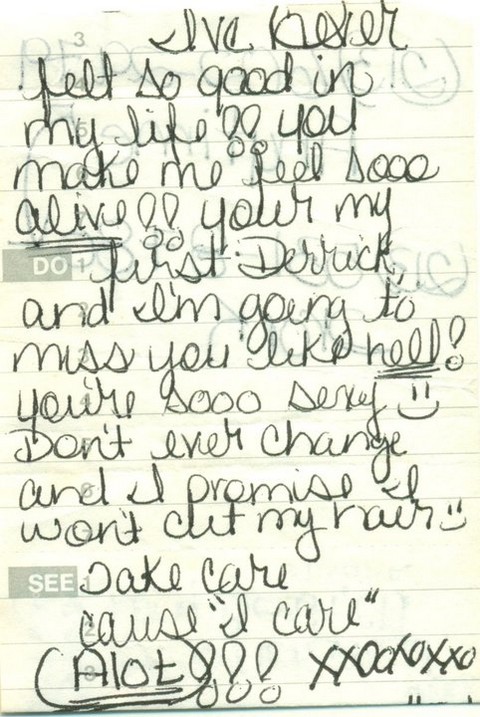 I've Never
felt so good in
my life!! you
make me feel sooo
alive!! your my
DO first Derrick,
and I'm going to
miss you like hell!
you're sooo sexy
Don't ever change
and I promise I
won't cut my hair
SEE Take care
cause "I care"
Alot!!! XXOOXOXXO